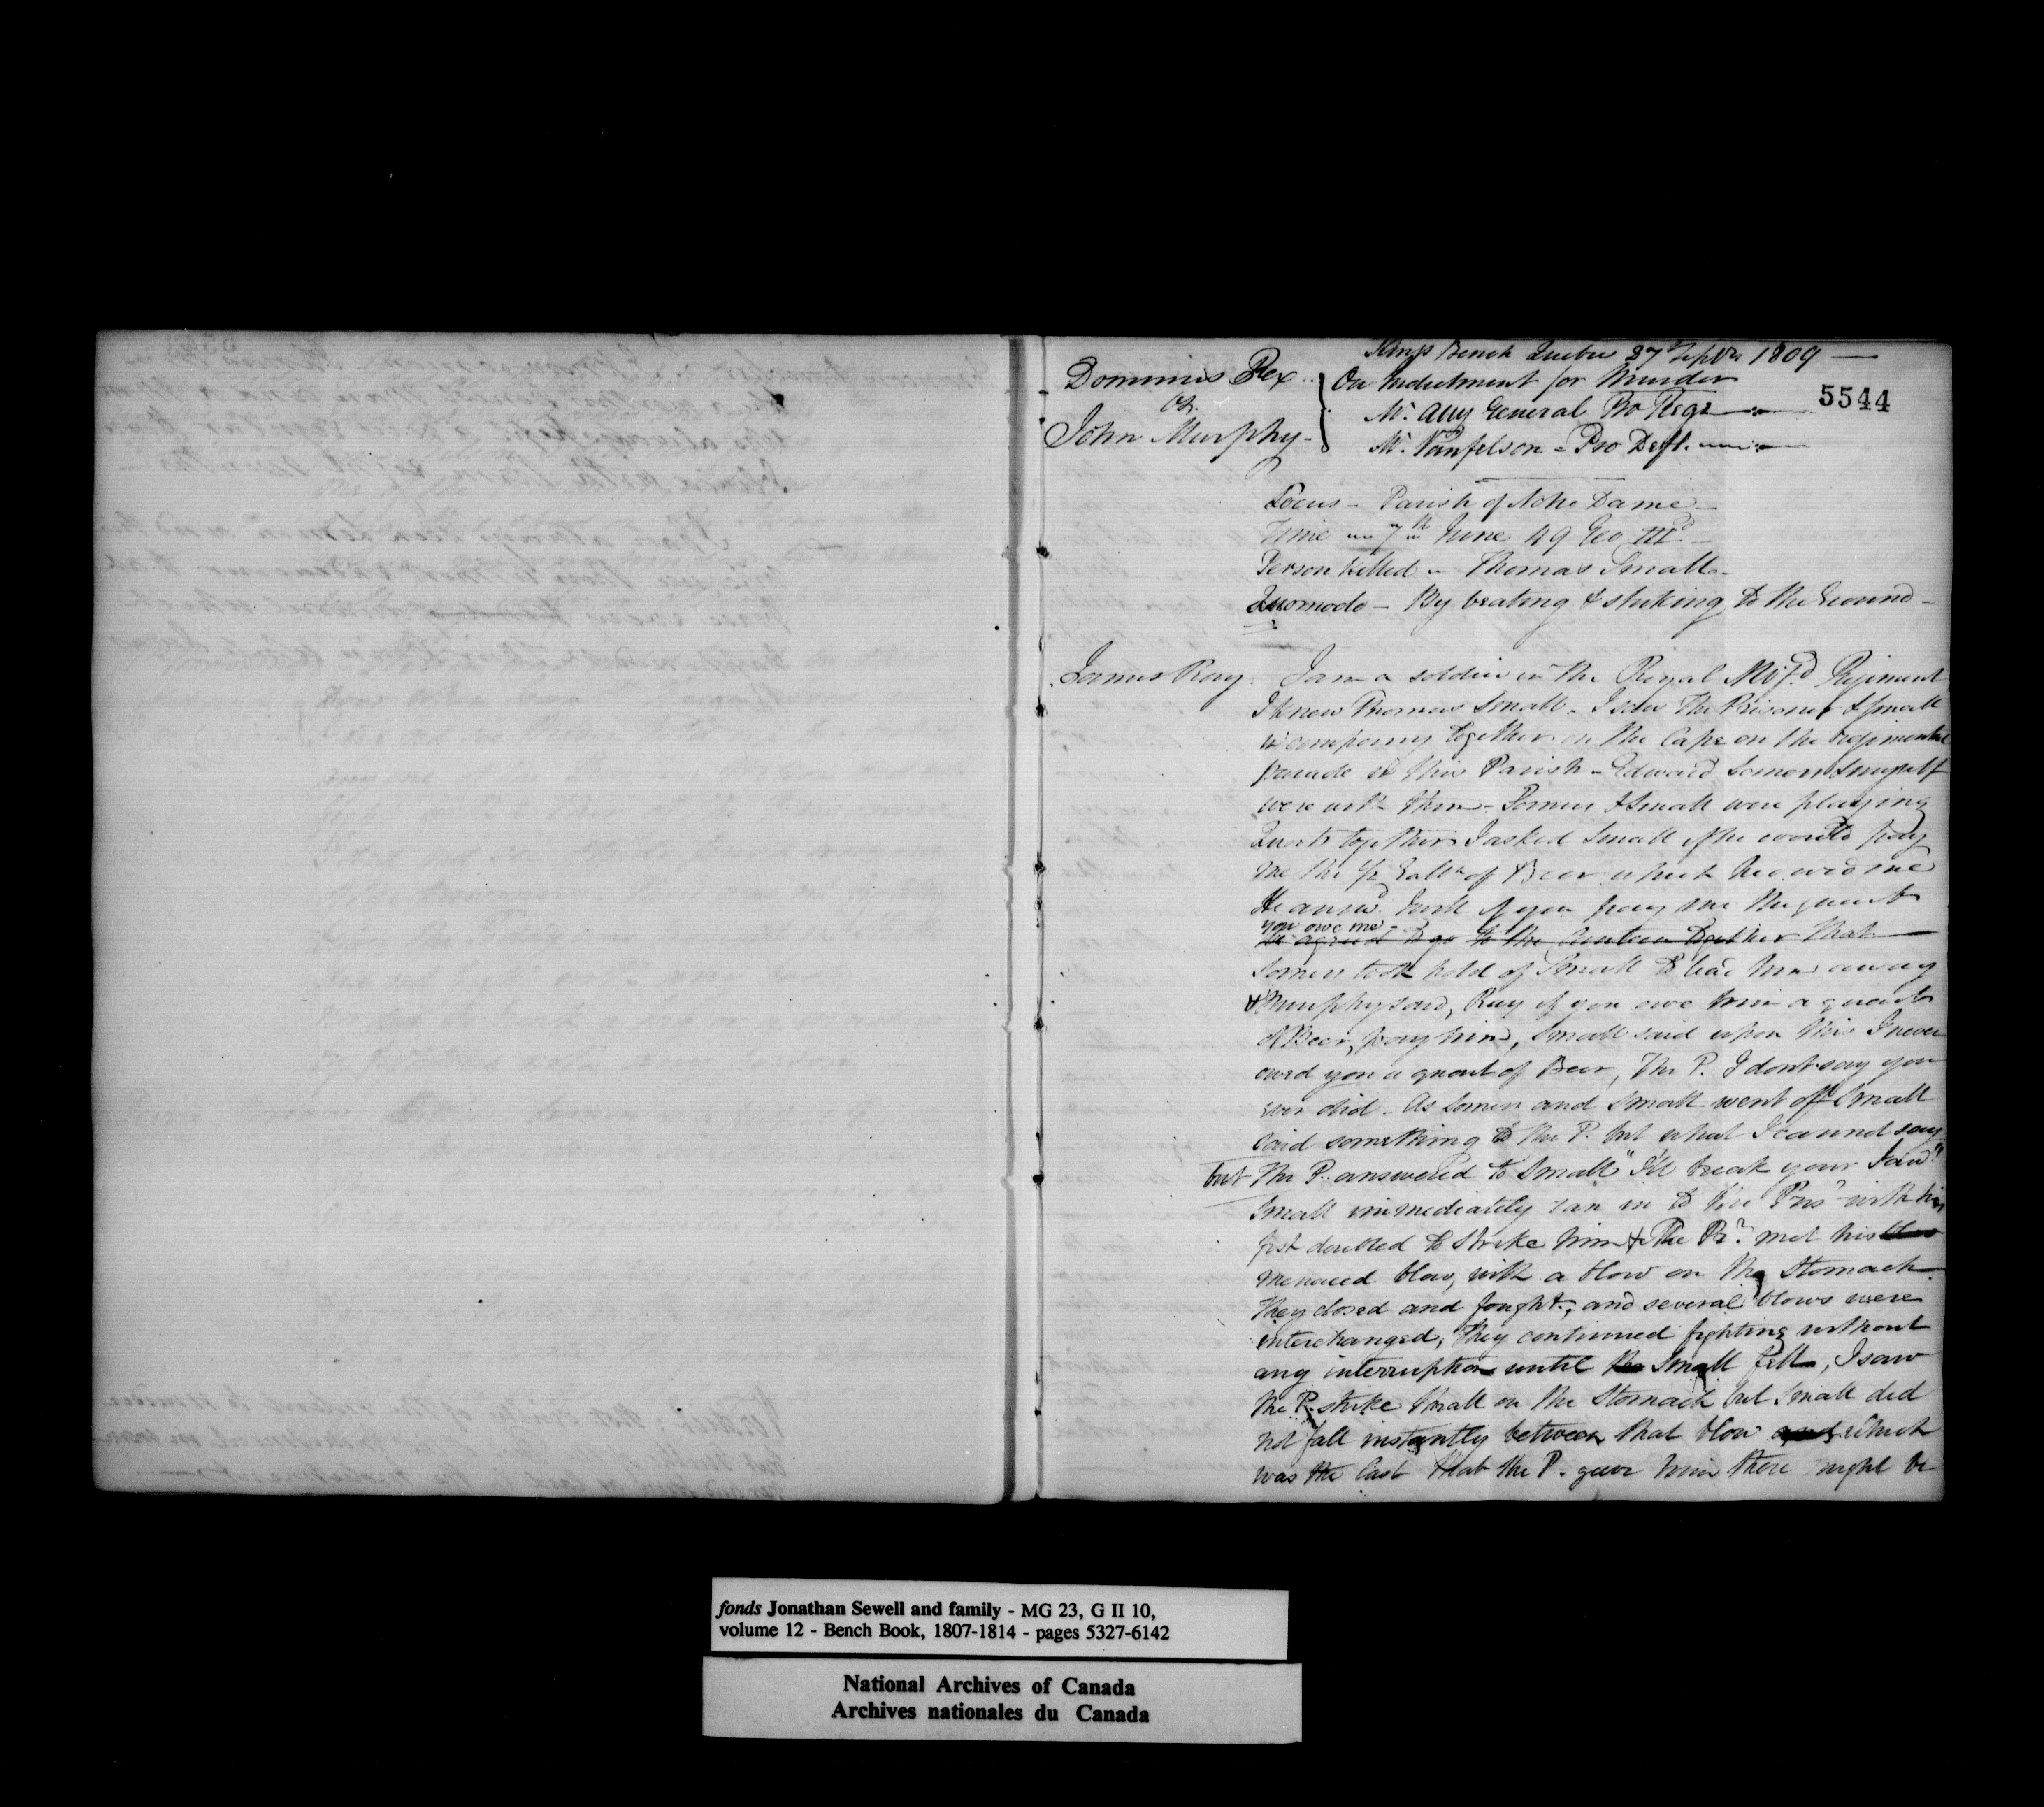 Kings Bench Quebec 27 Septr 1809
Dominus Rex
On Indictment for Murder
vs.
Mr. Atty General Pro Rege
5544
John Murphy
Mr. Vanfelson - Pro Deft.
Locus - Parish of Notre Dame
Time - 7th June 49 Geo IIId.
Person killed - Thomas Small -
Quomodo - By beating & striking to the Ground -
James Ray. I am a soldier in the Royal Newfd Regiment
I knew Thomas Small - I saw The Prisoner & Small
in company together on the Cape on the regimental
parade in this Parish - Edward Somers & myself
were with them - Somers & Small were playing
Quoits together I asked Small if he would pay
me the 1/2 Galln of Beer which he owed me
He answd. I will if you pay me the quart
you owe me -
he agreed to go to the Canteen together that
Somers took hold of Small to lead him away
& Murphy said, Ray if you owe him a quart
of Beer, pay him, Small said upon this I never
owed you a quart of Beer, The P. I dont say you
ever did - As Somers and Small went off Small
said something to the P. but what I cannot say
but The P. answered to Small "I'll break your Jaw"
Small immediately ran in to the Prisr with his
fist doubled to strike him & The Pr. met his blow
menaced blow, with a blow on the Stomach
They closed and fought, and several blows were
interchanged, they continued fighting without
any interruption until the Small fell, I saw
the P. strike Small on the Stomach but Small did
not fall instantly between that blow and which
was the last that the P. gave him there might be
fonds Jonathan Sewell and family - MG 23, G II 10,
volume 12 - Bench Book, 1807-1814 - pages 5327-6142
National Archives of Canada
Archives nationales du Canada